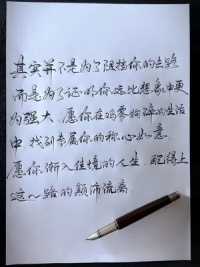 其实并不是为了阻挡你的去路
而是为了证明你远比想象中更
为强大、愿你在鸡零狗碎的生活
中找到专属你的称心如意.
愿你渐入佳境的人生、配得上
这一路的颠沛流离